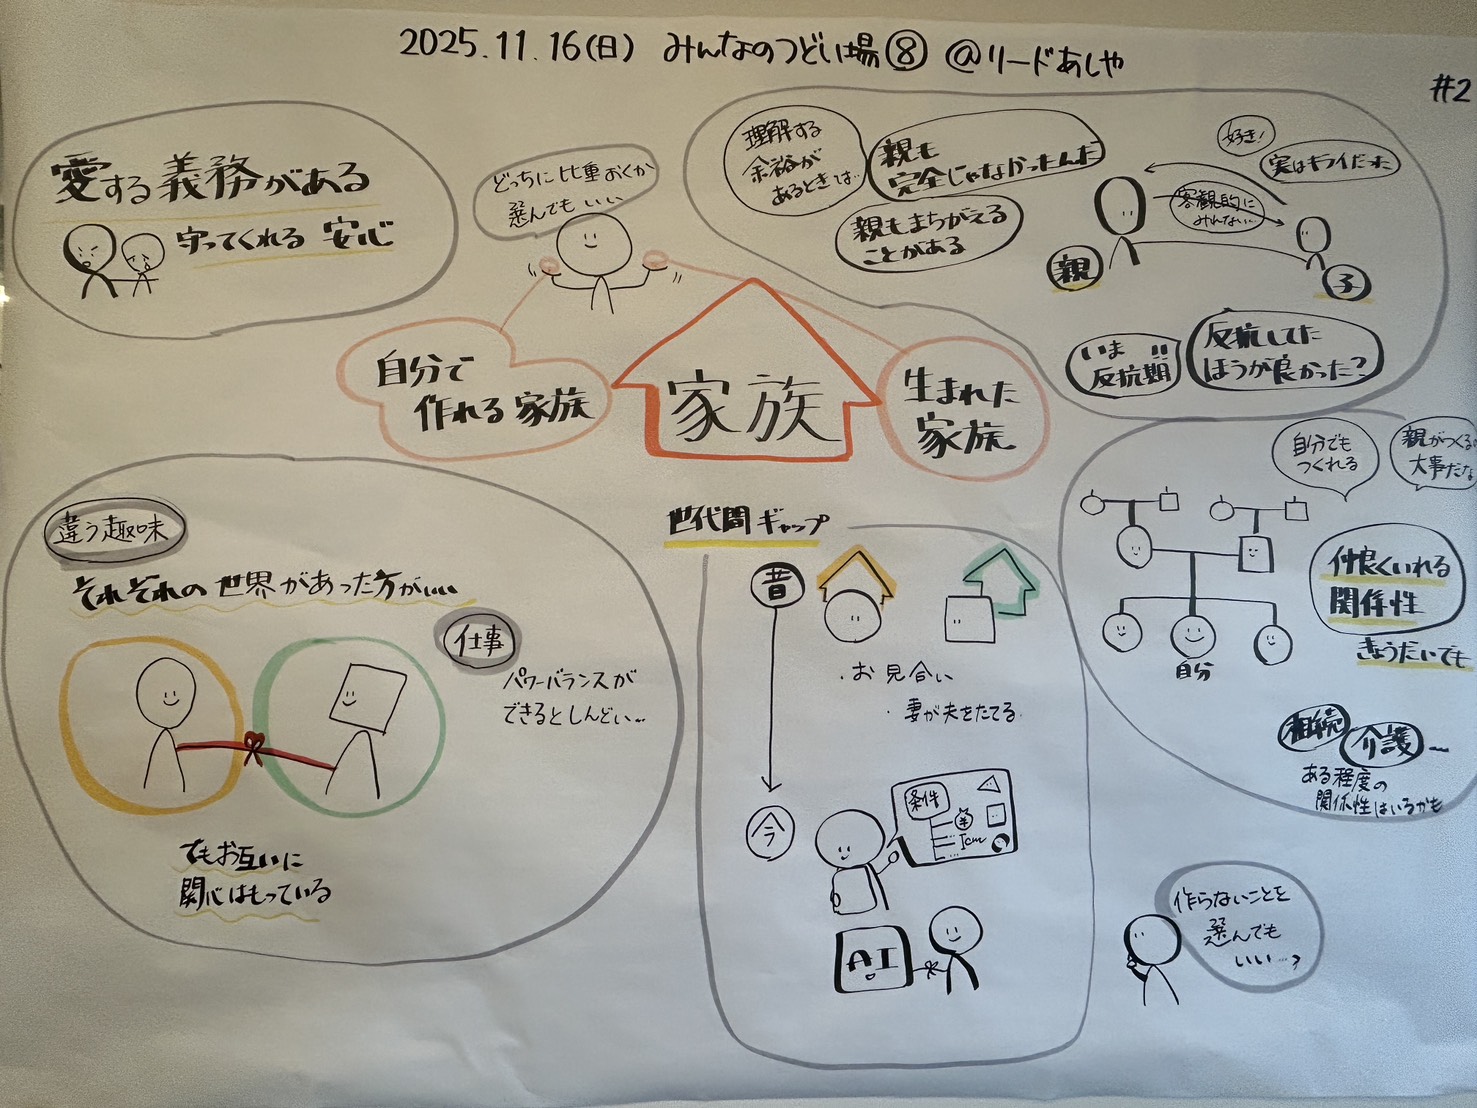 2025.11.16(日) みんなのつどい場⑧ @リードあしや
#2
愛する義務がある
守ってくれる 安心
どっちに比重おくか
選んでもいい
理解する
余裕が
あるときは…
親も
完全じゃなかったんだ
親もまちがえる
ことがある
好き!
実はキライだった
客観的に
みれない…
親
子
いま
反抗期!!
反抗してた
ほうが良かった?
自分で
作れる家族
家族
生まれた
家族
違う趣味
それぞれの世界があった方がいい
仕事
パワーバランスが
できるとしんどい…
でもお互いに
関心はもっている
世代間ギャップ
昔
・お見合い
・妻が夫をたてる
今
条件
¥
Icm
AI
自分でも
つくれる
親がつくるの
大事だな
仲良くいれる
関係性
きょうだいでも
自分
相続
介護…
ある程度の
関係性はいるかも
作らないことを
選んでも
いい…?